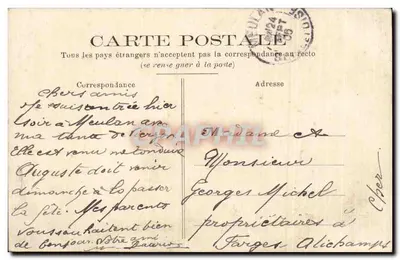 CARTE POSTALE
Tous les pays étrangers n'acceptent pas la correspondance au recto
(se renseigner à la poste)
Correspondance
Adresse
chers amis
Je suis rentrée hier
soir à Meulan
ma tante de
Elle est venue
Auguste doit venir
dimanche à la passer
la fête. Mes parents
vous souhaitent bien
de bonjour. Votre ami
Madame &
Monsieur
Georges Michel
propriétaires à
Farges Alichamps
Cher